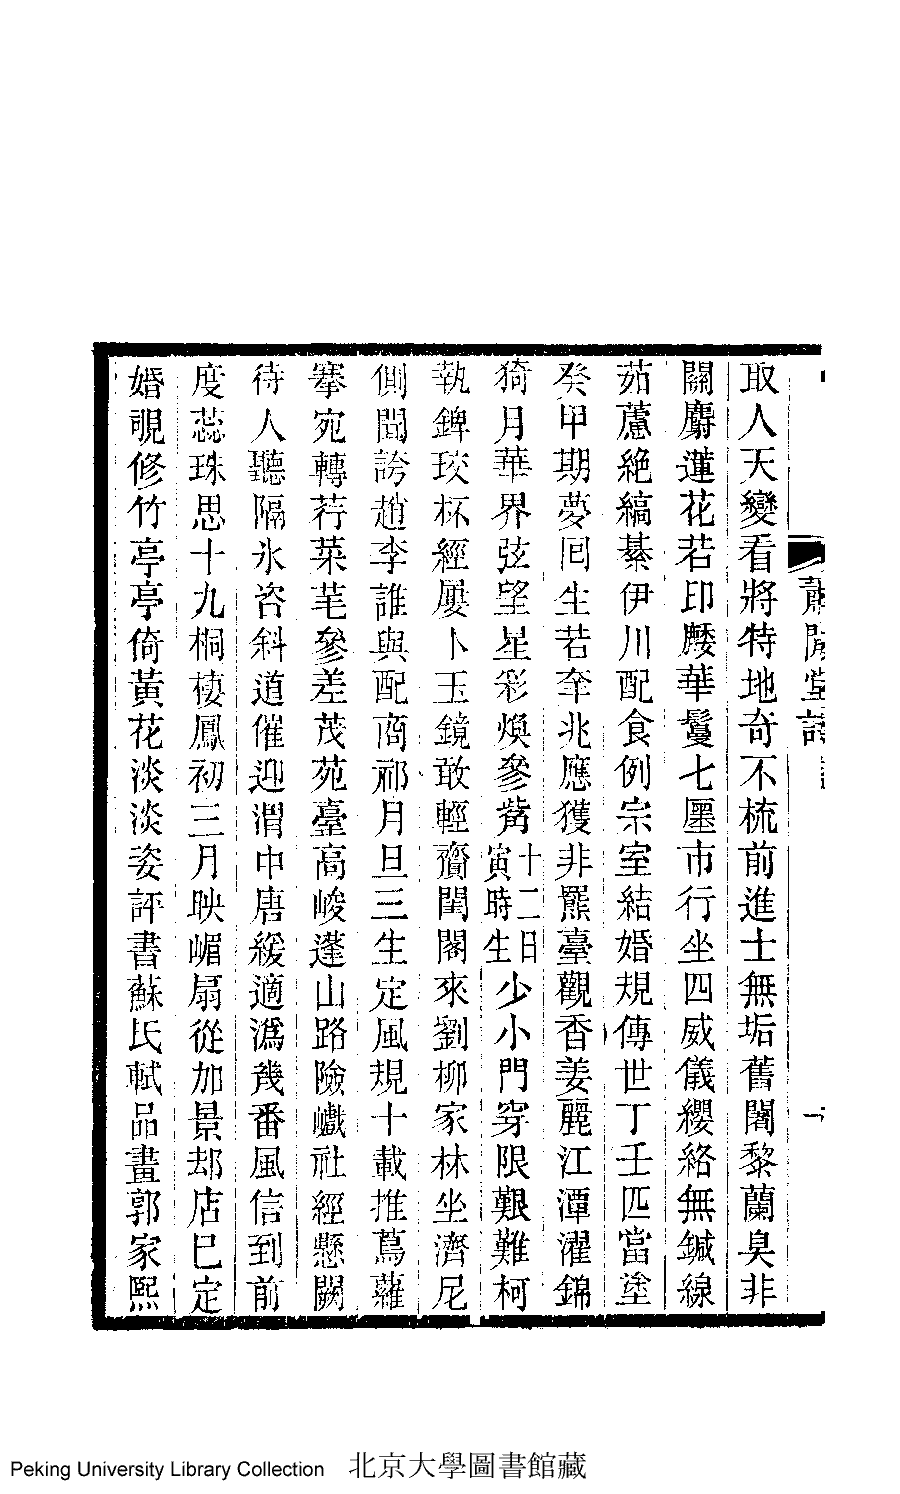 取人天變看將特地奇不梳前進士無垢舊闍黎蘭臭非
關麝蓮花若印麼華鬘七匽市行坐四威儀纓絡無鍼線
茹藘絶縞綦伊川配食例宗室結婚規傳世丁壬匹當塗
癸甲期夢回生若奎兆應獲非羆臺觀香姜麗江潭濯錦
猗月華界弦望星彩煥參觜十二日寅時生少小門穿限艱難柯
執錍玟杯經屢卜玉鏡敢輕齎閨閣來劉柳家林坐濟尼
側聞誇趙李誰與配商祁月旦三生定風規十載推蔦蘿
搴宛轉荇菜芼參差茂苑臺高峻蓬山路險巇社經懸闕
待人聽隔氷咨斜道催迎渭中唐緩適潙幾番風信到前
度蕊珠思十九桐棲鳳初三月映嵋扇從加景却店巳定
婚覗修竹亭亭倚黃花淡淡姿評書蘇氏軾品畫郭家熙